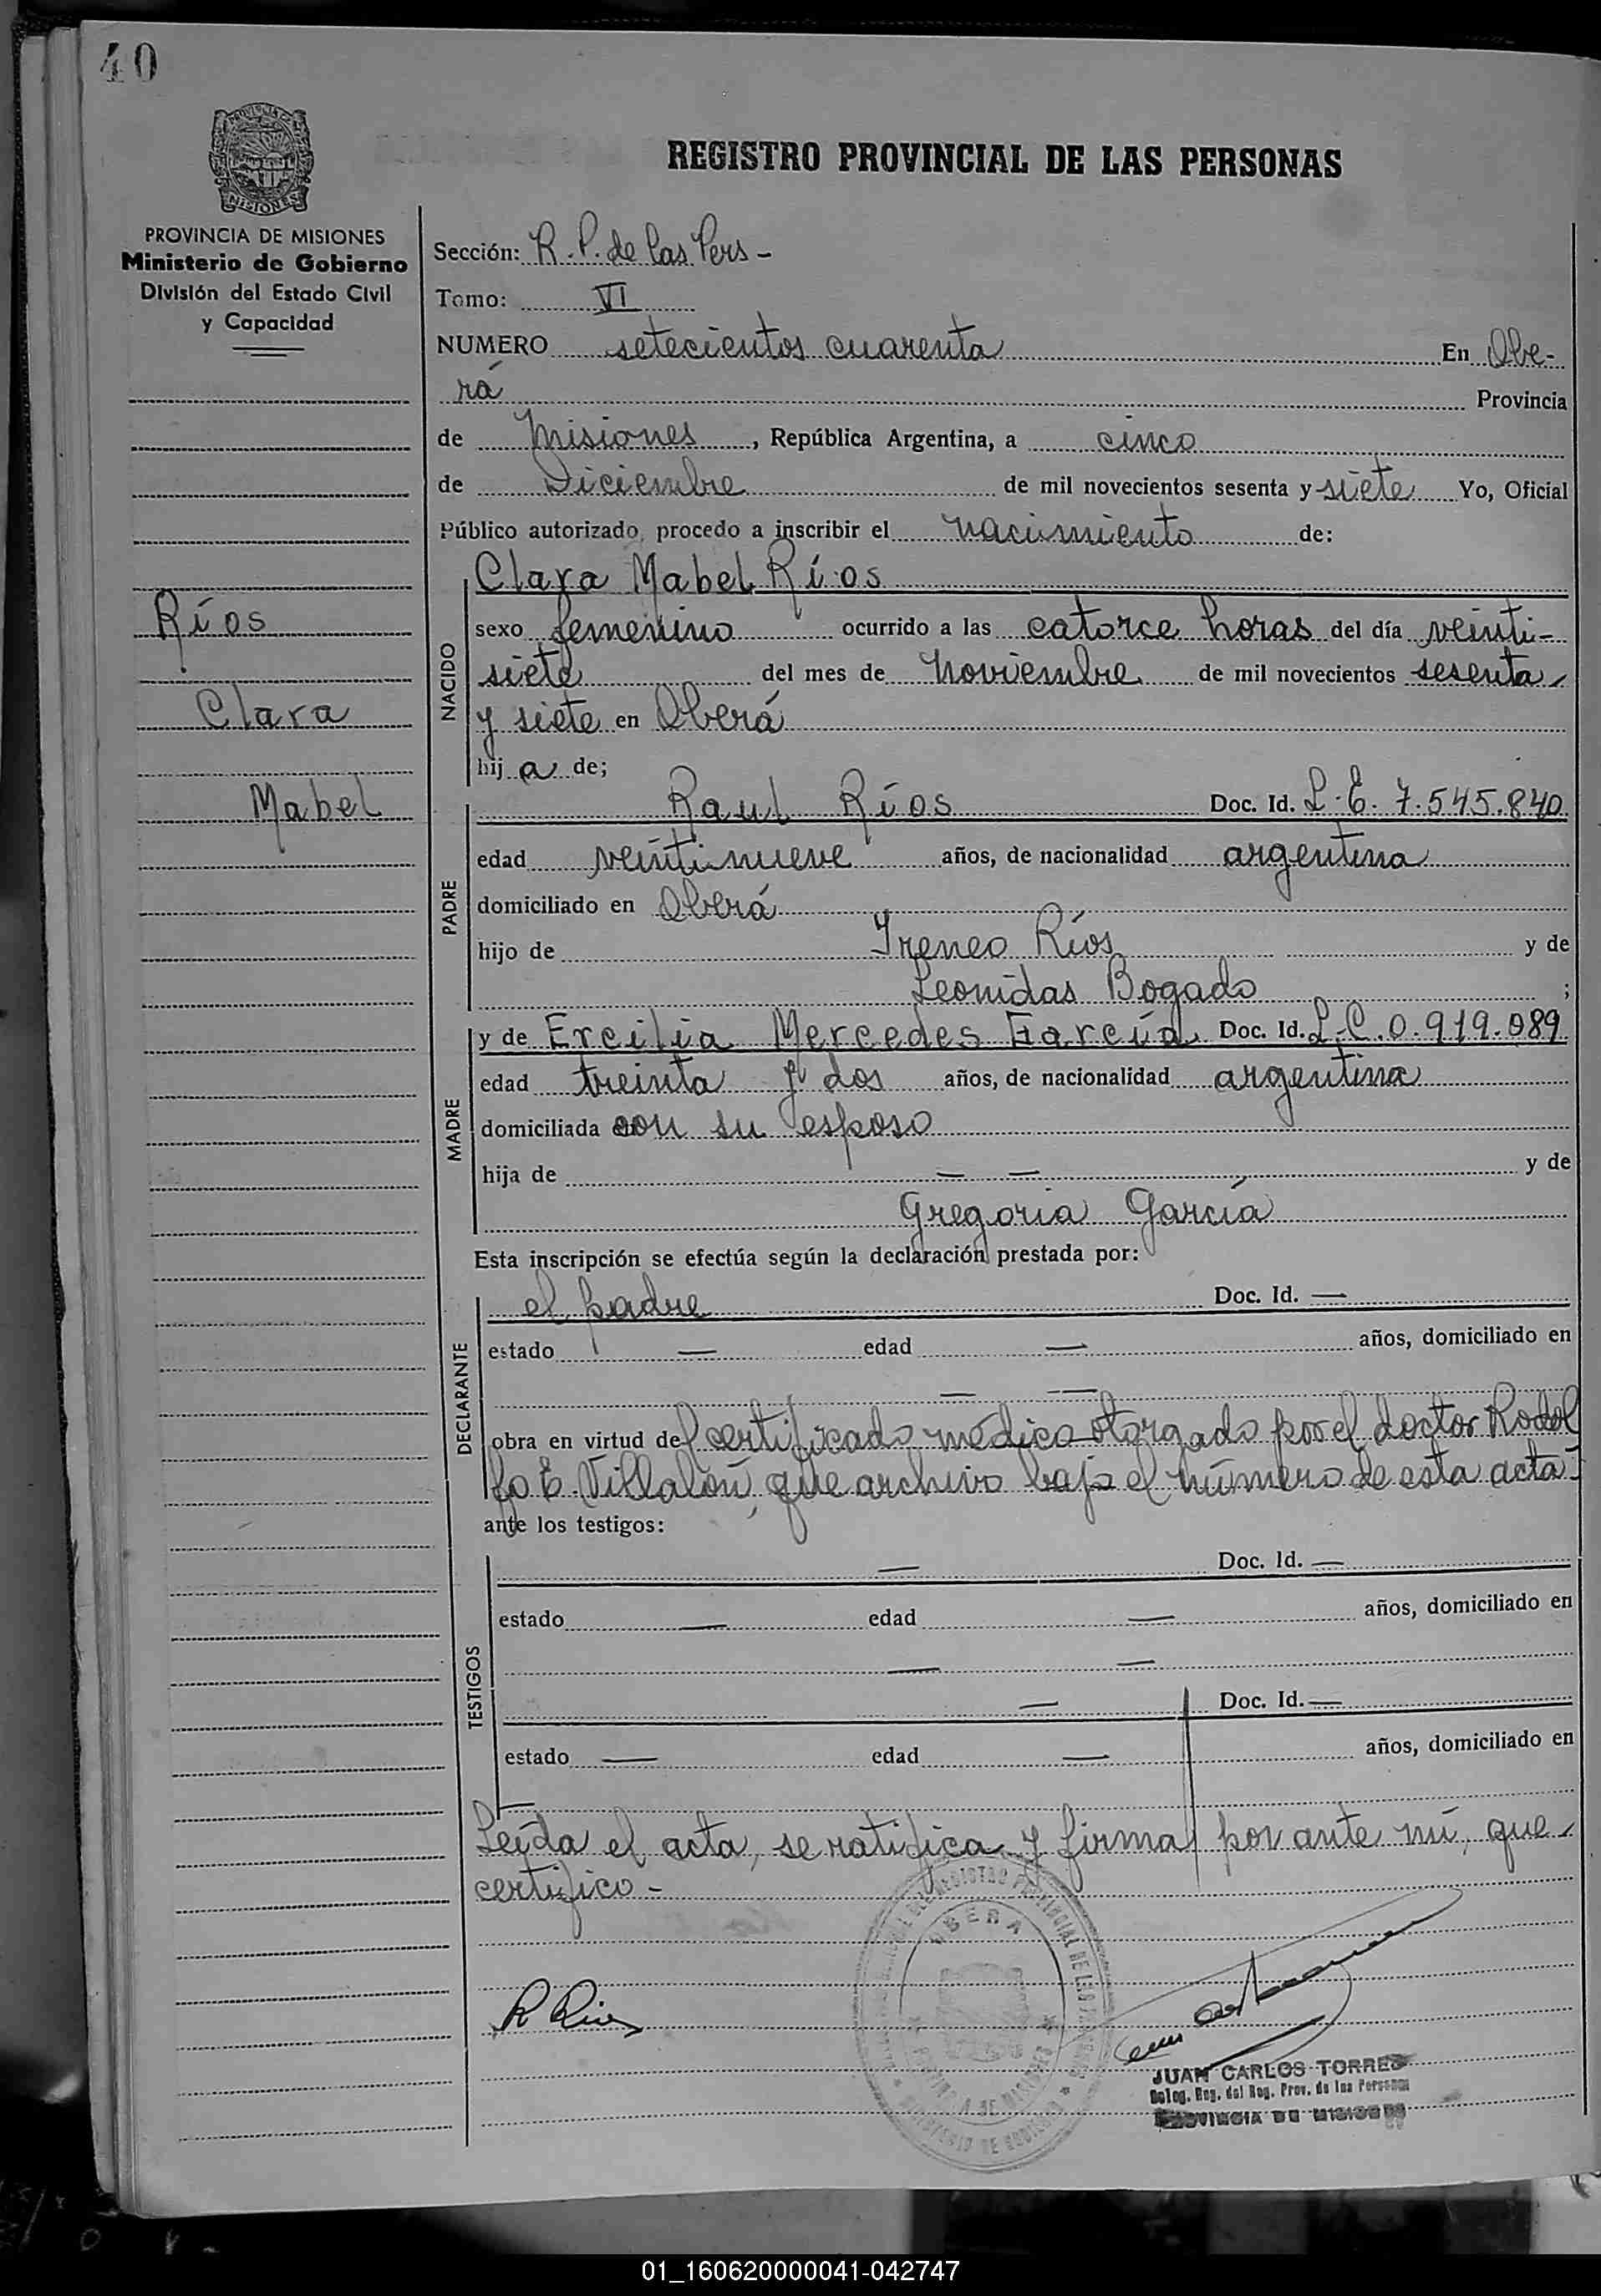 40
PROVINCIA DE MISIONES
Ministerio de Gobierno
División del Estado Civil
y Capacidad
Ríos
Clara
Mabel
REGISTRO PROVINCIAL DE LAS PERSONAS
Sección: R. P. de las Pers -
Tomo: VI
NUMERO setecientos cuarenta En Obe-
rá Provincia
de Misiones, República Argentina, a cinco
de Diciembre de mil novecientos sesenta y siete Yo, Oficial
Público autorizado, procedo a inscribir el nacimiento de:
NACIDO
Clara Mabel Ríos
sexo femenino ocurrido a las catorce horas del día veinti-
siete del mes de Noviembre de mil novecientos sesenta
y siete en Oberá
hij a de;
PADRE
Raul Ríos Doc. Id. L. E. 7.545.840
edad veintinueve años, de nacionalidad argentina
domiciliado en Oberá
hijo de Ireneo Ríos y de
Leonidas Bogado ;
MADRE
y de Ercilia Mercedes García Doc. Id. L. C. 0.919.089
edad treinta y dos años, de nacionalidad argentina
domiciliada con su esposo
hija de — — y de
Gregoria García
Esta inscripción se efectúa según la declaración prestada por:
DECLARANTE
el padre Doc. Id. —
estado — edad — años, domiciliado en
— —
obra en virtud del certificado médico otorgado por el doctor Rodol
fo E. Villalón, que archivo bajo el número de esta acta -
ante los testigos:
TESTIGOS
— Doc. Id. —
estado — edad — años, domiciliado en
— —
— Doc. Id. —
estado — edad — años, domiciliado en
Leída el acta, se ratifica y firma por ante mí, que
certifico -
R Ríos
OBERA
JUAN CARLOS TORRES
Deleg. Reg. del Reg. Prov. de las Personas
PROVINCIA DE MISIONES
01_160620000041-042747